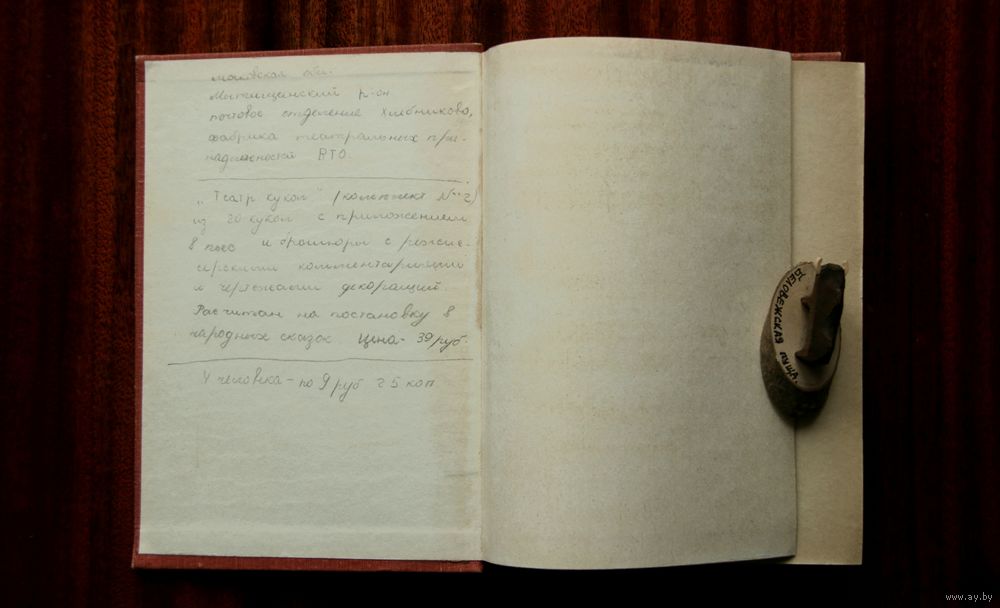 московская обл.
Мытищинский р-он
почтовое отделение Хлебниково,
фабрика театральных при-
надлежностей ВТО.
„Театр кукол" (комплект №2)
из 20 кукол с приложением
8 пьес и брошюры с режис-
серскими комментариями
и чертежами декораций.
Расчитан на постановку 8
народных сказок Цена - 39 руб.
4 человека - по 9 руб 75 коп
БЕЛОВЕЖСКАЯ ПУЩА.
www.ay.by